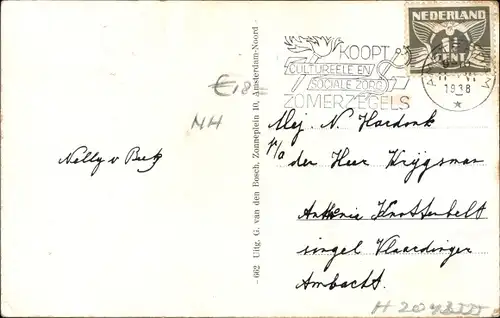 NEDERLAND
KOOPT
CULTUREELE EN
SOCIALE ZORG
ZOMERZEGELS
1938
€18-
NH
Nelly v Beek
- 662 Uitg. G. van den Bosch, Zonneplein 10, Amsterdam-Noord -
Mej. N. Hardonk
p/a
der Heer Krijgsman
Anthonie Knotterbelt
singel Vlaardinger
Ambacht.